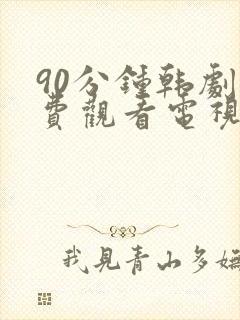 90分鐘韩劇
費觀看電視
我見青山多嫵